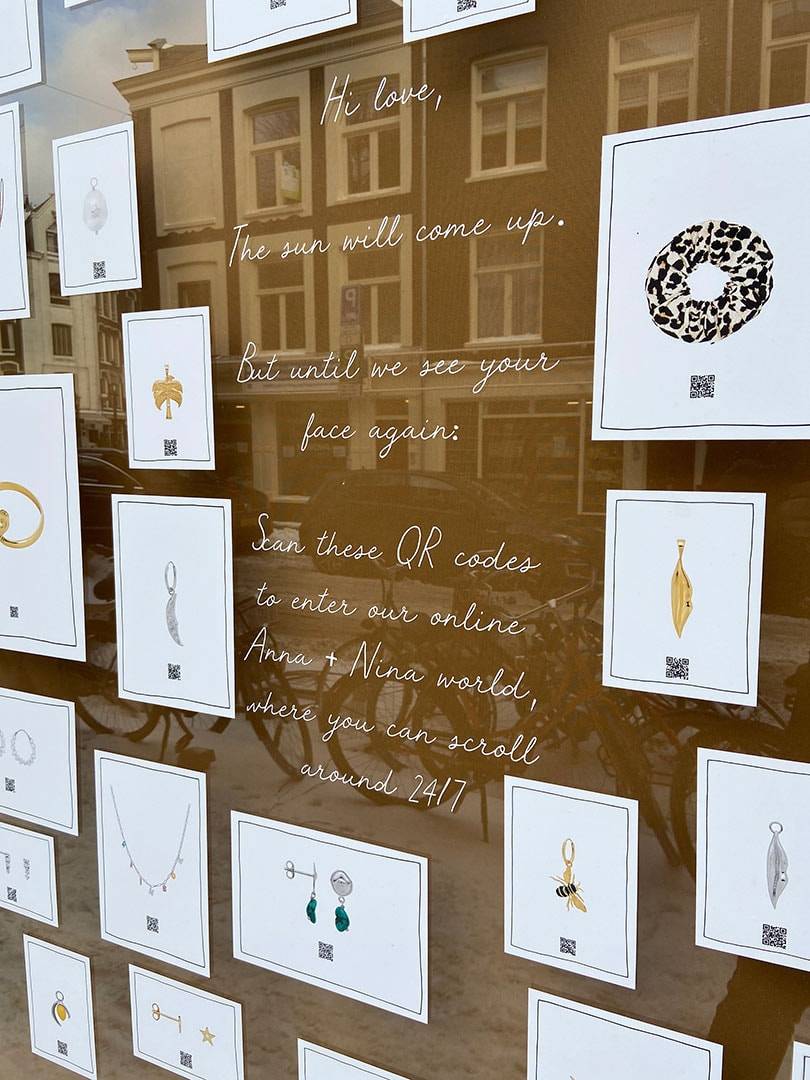 Hi love,
The sun will come up.
But until we see your
face again:
Scan these QR codes
to enter our online
Anna + Nina world,
where you can scroll
around 24/7